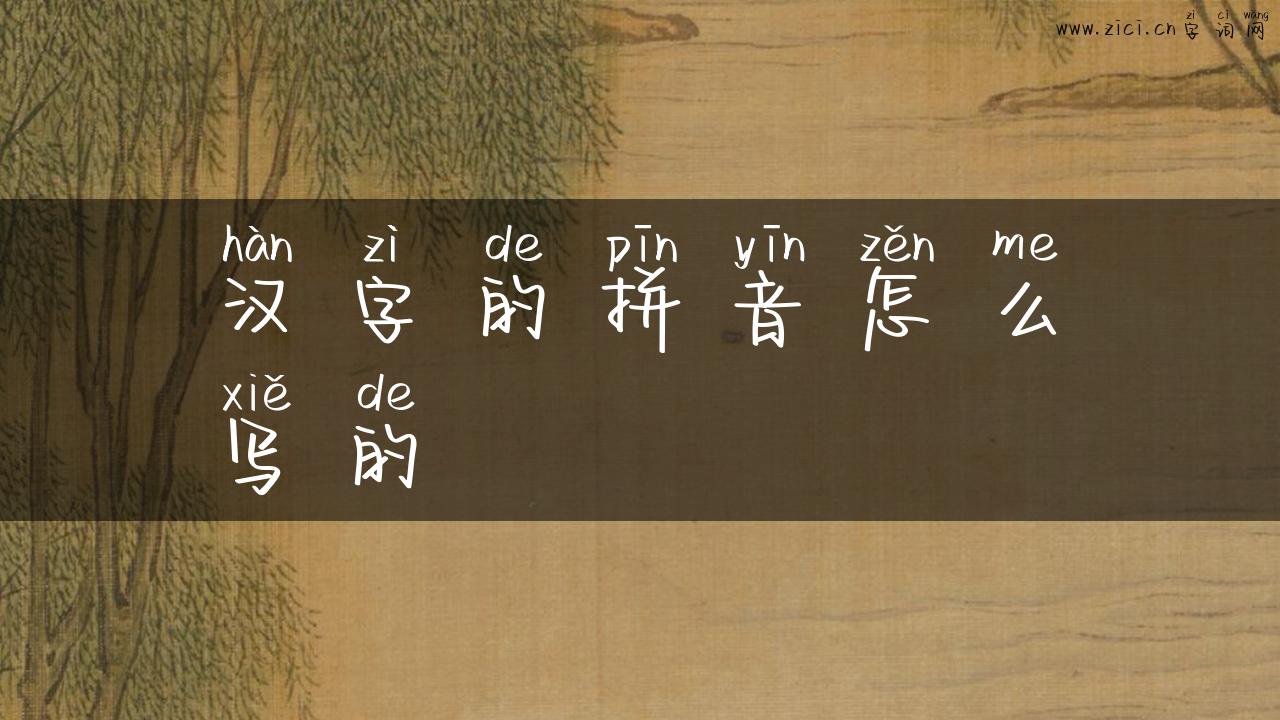 zì cí wǎng
www.zici.cn 字 词 网
hàn zì de pīn yīn zěn me
汉 字 的 拼 音 怎 么
xiě de
写 的